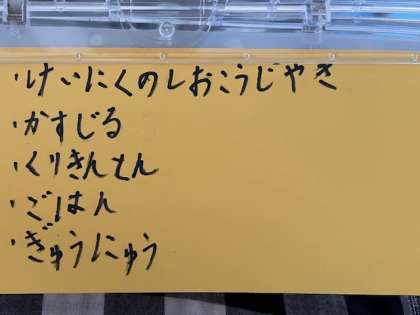 ・けいにくのしおこうじやき
・かすじる
・くりきんとん
・ごはん
・ぎゅうにゅう